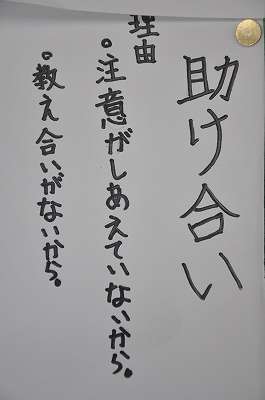 助け合い
理由
。注意がしあえていないから。
。教え合いがないから。